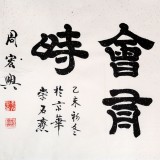 會有
時
乙未初冬
於京華
崇石齋
周宏興